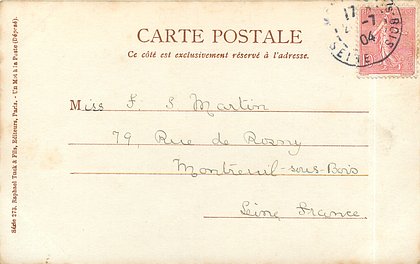 CARTE POSTALE
Ce côté est exclusivement réservé à l'adresse.
17
-7
04
SEINE
S-BOIS
Miss F. S Martin
79, Rue de Rosny
Montreuil-sous-Bois
Seine France
Série 275, Raphael Tuck & Fils, Editeurs, Paris. - Un Mot à la Poste (Déposé).